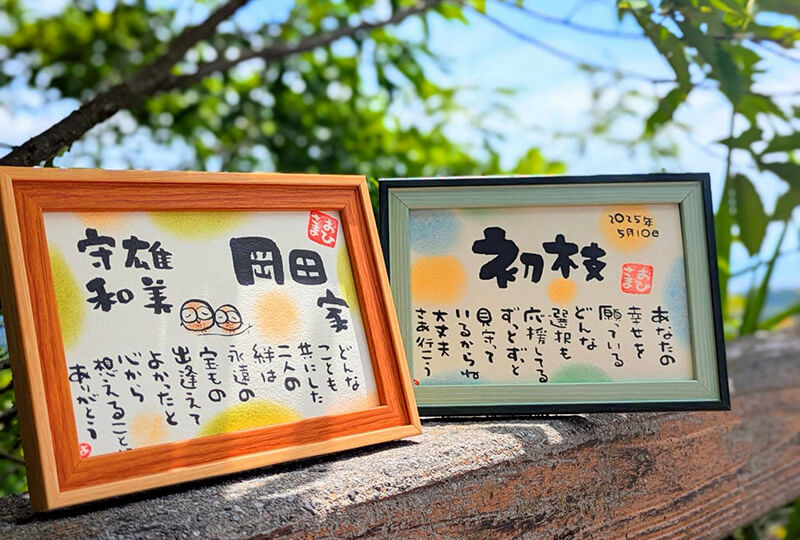 おひさま
岡田家
守雄
和美
どんな
ことも
共にした
二人の
絆は
永遠の
宝もの
出逢えて
よかったと
心から
想えること
ありがとう
2025年
5月10日
初枝
おひさま
あなたの
幸せを
願っている
どんな
選択も
応援してる
ずっとずっと
見守って
いるからね
大丈夫
さあ行こう